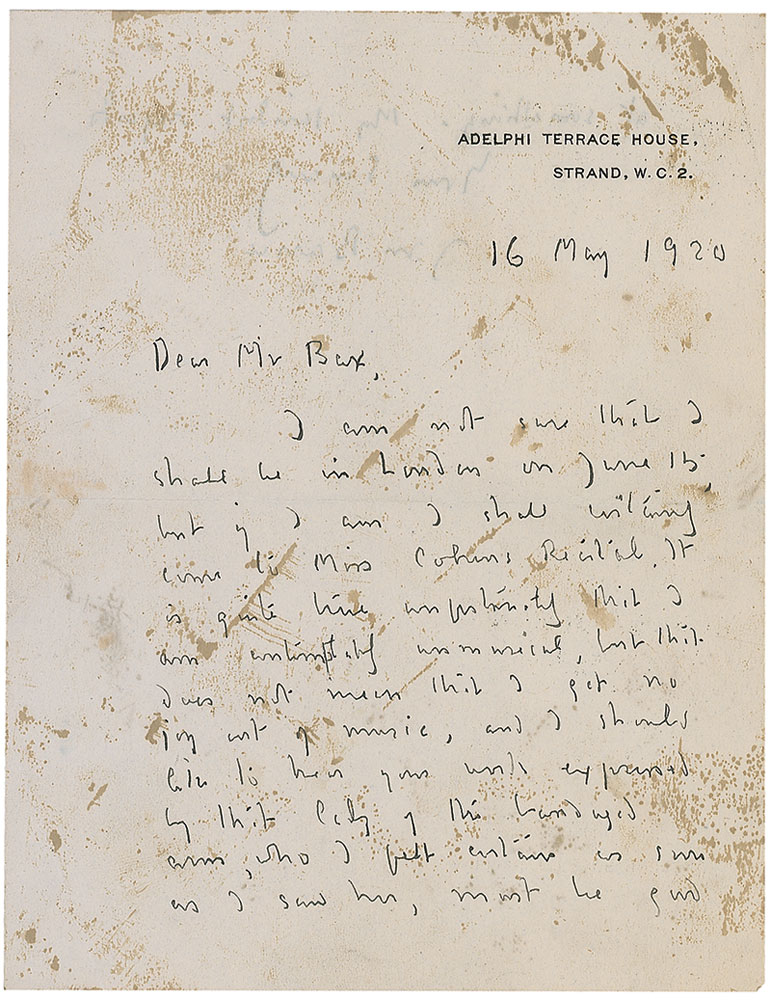 ADELPHI TERRACE HOUSE,
STRAND, W.C.2.
16 May 1920
Dear Mr Bax,
I am not sure that I
shall be in London on June 15,
but if I am I shall certainly
come to Miss Cohens Recital. It
is quite true unfortunately that I
am unmusical, but that
does not mean that I get no
joy out of music, and I should
like to hear your work expressed
by that lady of the bandaged
arm, who I felt certain as soon
as I saw her, must be good